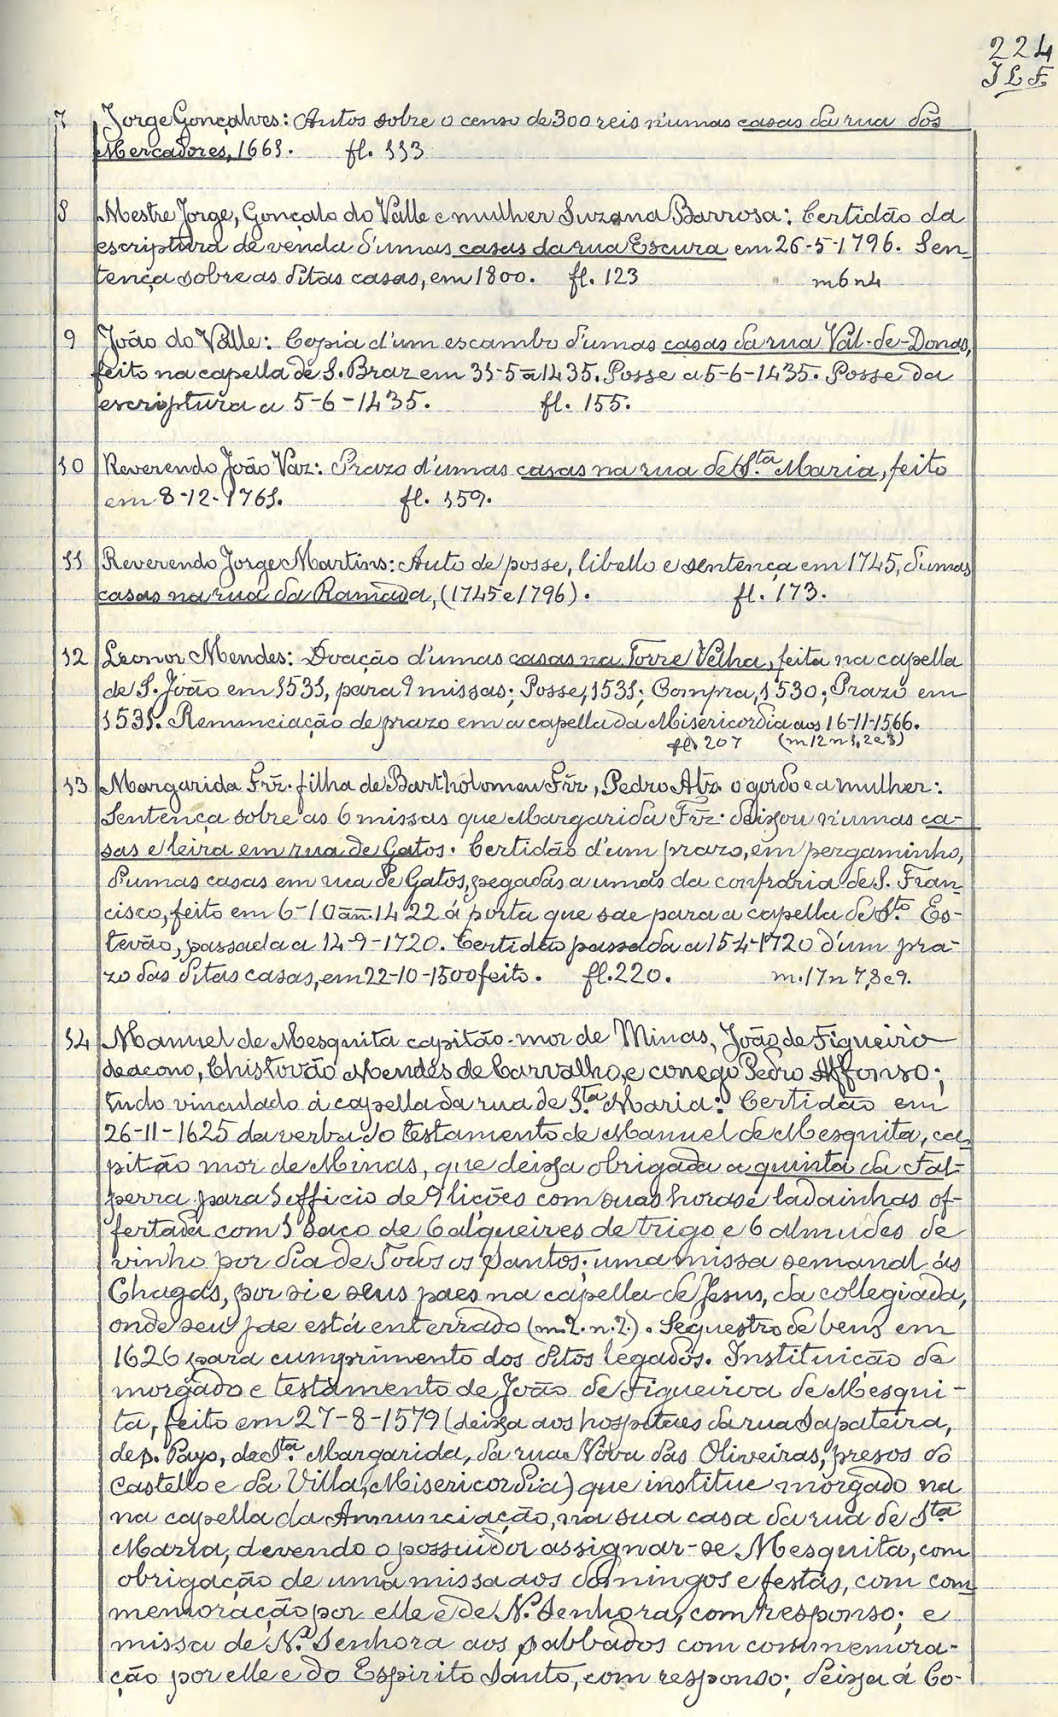 224
J L F
7 Jorge Gonçalves: Autos sobre o censo de 300 reis n'umas casas da rua dos
Mercadores, 1661. fl. 113
8 Mestre Jorge, Gonçalo do Valle e mulher Suzana Barrosa: Certidão da
escriptura de venda d'umas casas da rua Escura em 26-5-1796. Sen-
tença sobre as ditas casas, em 1800. fl. 123 m6 n4
9 João do Valle: Copia d'um escambo d'umas casas da rua Val-de-Donas,
feito na capella de S. Braz em 31-5-1435. Posse a 5-6-1435. Posse da
escriptura a 5-6-1435. fl. 155.
10 Reverendo João Vaz: Prazo d'umas casas na rua de Sta Maria, feito
em 8-12-1761. fl. 159.
11 Reverendo Jorge Martins: Auto de posse, libello e sentença em 1745, d'umas
casas na rua da Ramada, (1745 e 1796). fl. 173.
12 Leonor Mendes: Doação d'umas casas na Torre Velha, feita na capella
de S. João em 1531, para 9 missas; Posse, 1531; Compra, 1530; Prazo em
1531. Renunciação de prazo em a capella da Misericordia aos 16-11-1566.
fl. 207 (m12 n1, 2 e 3)
13 Margarida Frz. filha de Bartholomeu Frz, Pedro Alz o gordo e a mulher:
Sentença sobre as 6 missas que Margarida Frz. deixou n'umas ca-
sas e leira em rua de Gatos. Certidão d'um prazo, em pergaminho,
d'umas casas em rua de Gatos, pegadas a umas da confraria de S. Fran-
cisco, feito em 6-10 ann. 1422 á porta que sae para a capella de Sto. Es-
tevão, passada a 12-9-1720. Certidão passada a 15-4-1720 d'um pra-
zo das ditas casas, em 22-10-1500 feito. fl. 220. m. 17 n 7, 8 e 9.
14 Manuel de Mesquita capitão-mor de Minas, João de Figueiro
deacono, Christovão Mendes de Carvalho, e conego Pedro Affonso;
tudo vinculado á capella da rua de Sta. Maria: Certidão em
26-11-1625 da verba do testamento de Manuel de Mesquita, ca-
pitão mor de Minas, que deixa obrigada a quinta da Fal-
perra para 1 officio de 9 lições com suas horas e ladainhas of-
fertada com 1 saco de 6 alqueires de trigo e 6 almudes de
vinho por dia de Todos os Santos; uma missa semanal ás
Chagas, por si e seus paes na capella de Jesus, da collegiada,
onde seu pae está enterrado (m. 2. n. 2.). Sequestro de bens em
1626 para cumprimento dos ditos legados. Instituição de
morgado e testamento de João de Figueiroa de Mesqui-
ta, feito em 27-8-1579 (deixa aos hospitaes da rua Sapateira,
de S. Payo, de Sta. Margarida, da rua Nova das Oliveiras, presos do
Castello e da Villa, Misericordia) que institue morgado na
na capella da Annunciação, na sua casa da rua de Sta
Maria, devendo o possuidor assignar-se Mesquita, com
obrigação de uma missa aos domingos e festas, com com-
memoração por elle e de N.a Senhora, com responso; e
missa de N.a Senhora aos sabbados com commemora-
ção por elle e do Espirito Santo, com responso; deixa á Co-